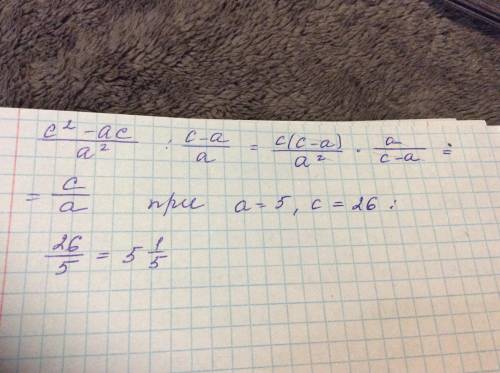 (c² - ac)/a² : (c-a)/a = c(c-a)/a² · a/(c-a) =
= c/a при a = 5, c = 26 :
26/5 = 5 1/5